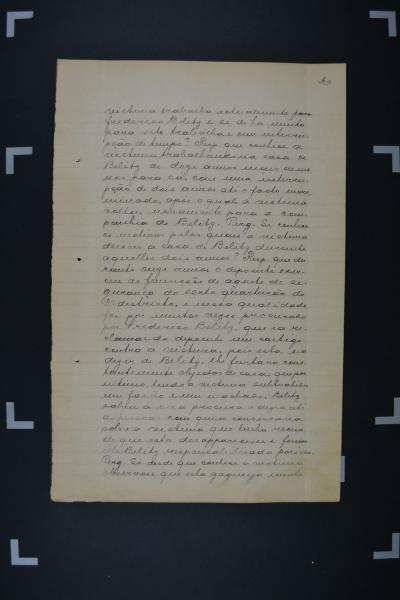 victima trabalha actualmente para
Frederico Belitz e se de ha muito
para este trabalha sem interru-
pção de tempo? Resp. que conhece a
victima trabalhando na casa de
Belitz de doze annos mais ou me-
nos para cá, com uma interru-
pção de dois annos até o facto incri-
minado, após o qual a victima
voltou novamente para a com-
panhia de Belitz. Perg. Si conhece
os motivos pelos quaes a victima
deixou a casa de Belitz durante
aquelles dois annos? Resp. que du-
rante seis annos o depoente exer-
ceu as funcções de agente de se-
gurança do sexto quarteirão do
districto, e nessa qualidade
foi por muitas vezes procurado
por Frederico Belitz, que ia re-
clamar do depoente um castigo
contra a victima, pois esta, no
dizer de Belitz, lhe furtava cons-
tantemente objectos de casa,
ultimo, tendo a victima subtrahido
um facão e um machado, Belitz
sahiu a sua procura e dizia ate
as pessoas com quem conversava
sobre a victima que tinha receio
de que esta desapparecesse e fosse
elle Belitz responsabilisado por isso.
Perg. Si desde que conhece a victima
observou que ella gagueja muito